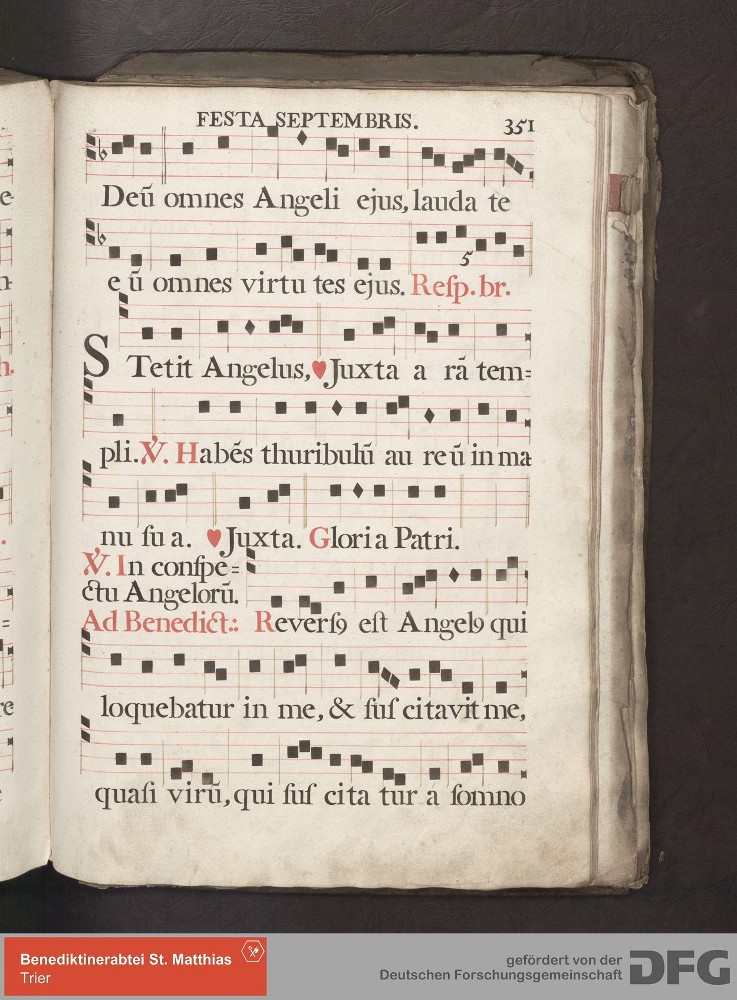 FESTA SEPTEMBRIS. 351
Deū omnes Angeli ejus, lauda te
e ū omnes virtu tes ejus. Reſp. br.
5
STetit Angelus, Juxta a rā tem=
pli. ℣. Habēs thuribulū au re ū in ma
nu ſu a. Juxta. Gloria Patri.
℣. In conſpe=
ctu Angelorū.
Ad Benedict.: Reverſꝰ eſt Angelꝰ qui
loquebatur in me, & ſuſ citavit me,
quaſi virū, qui ſuſ cita tur á ſomno
Benediktinerabtei St. Matthias
Trier
gefördert von der
Deutschen Forschungsgemeinschaft
DFG